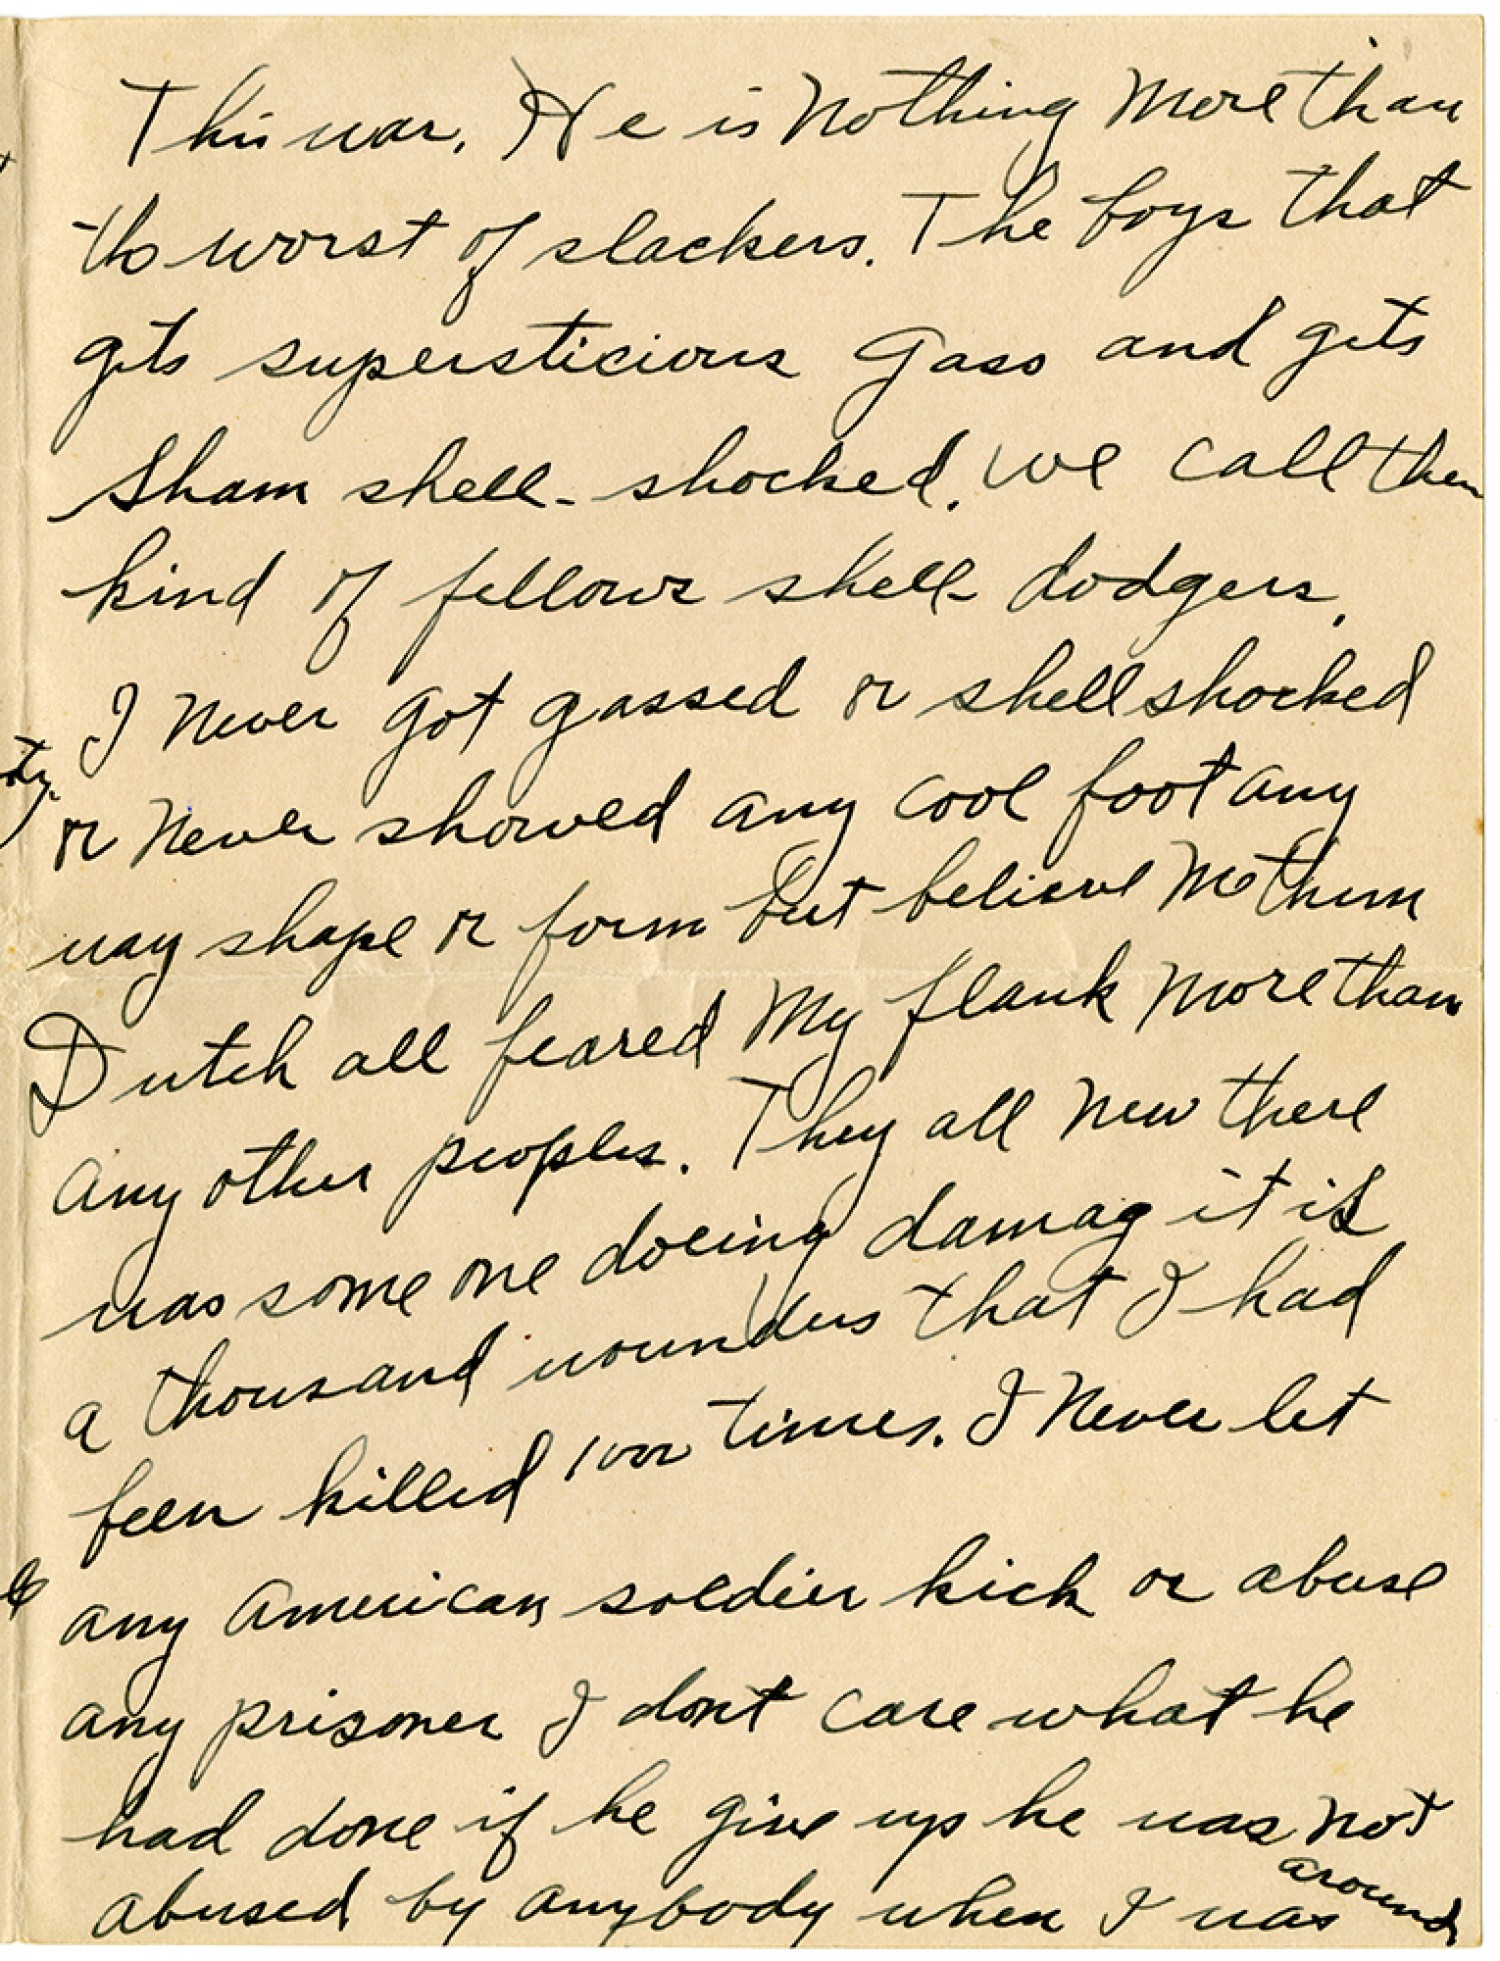 This war. He is Nothing More than
the worst of slackers. The boys that
gets supersticious Gass and gets
Sham shell-shocked. We call them
kind of fellows shell-dodgers.
I Never Got gassed or shellshocked
or Never showed any cool foot any
way shape or form but believe Me them
Dutch all feared My flank More than
any other peoples. They all New there
was some one doeing damag it is
a thousand woundus that I had
been killed 1000 times. I Never let
any American soldier kick or abuse
any prisoner I dont care what he
had done if he give up he was Not
abused by anybody when I was around